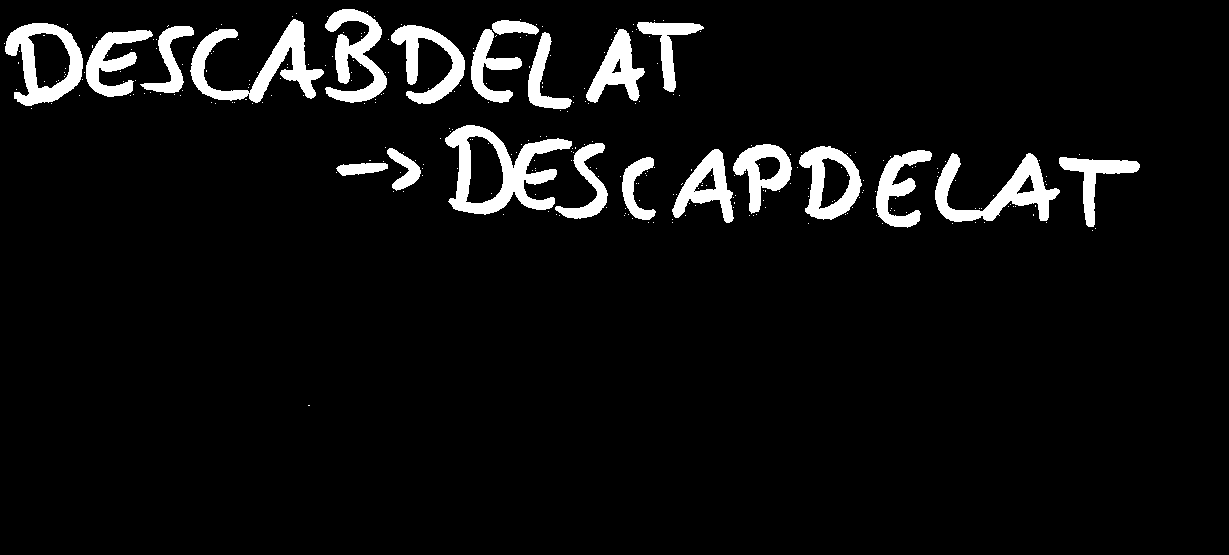 DESCABDELAT
→ DESCAPDELAT